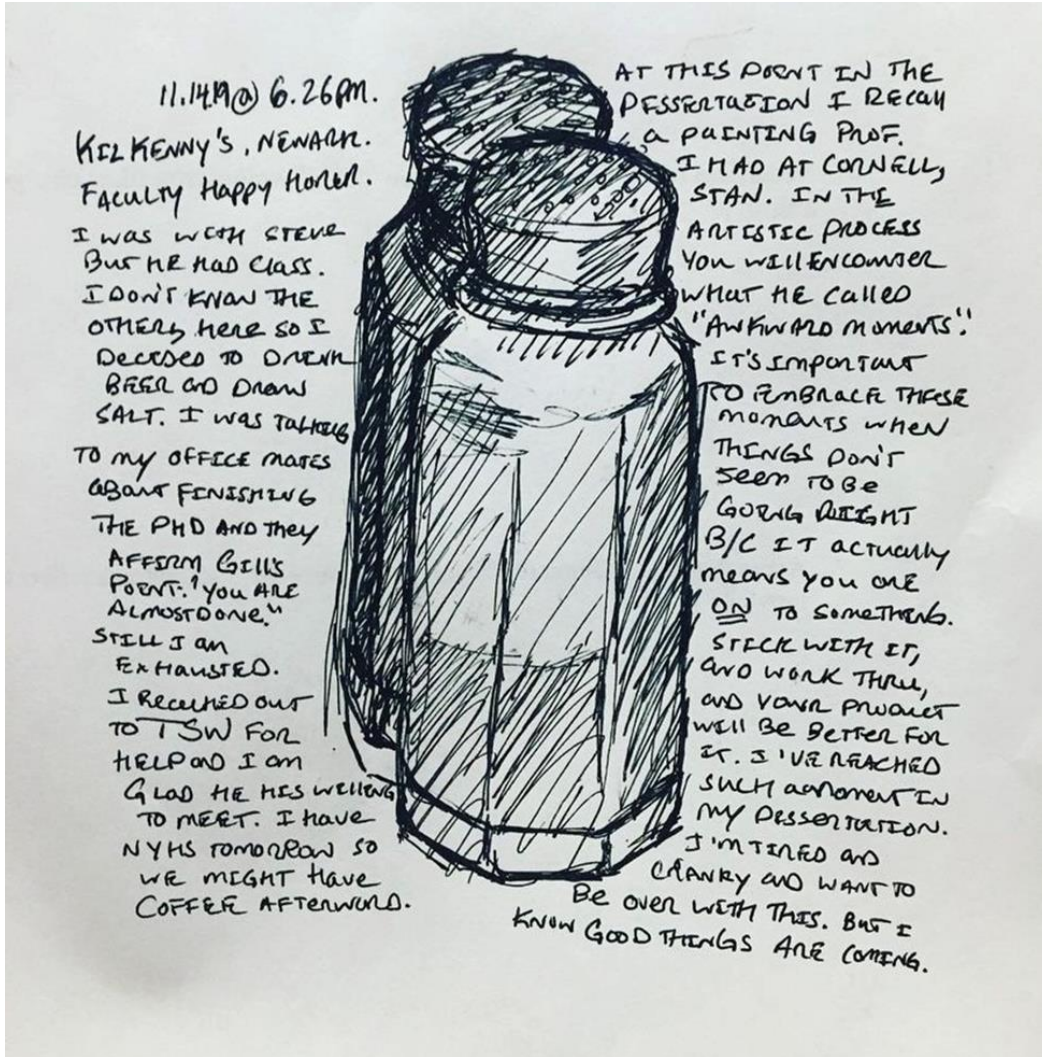 11.14.19@ 6.26PM.
KILKENNY'S, NEWARK.
FACULTY HAPPY HOUER.
I WAS WITH STEVE
BUT HE HAD CLASS.
I DON'T KNOW THE
OTHERS HERE SO I
DECIDED TO DRINK
BEER AND DRAW
SALT. I WAS TALKING
TO MY OFFICE MATES
ABOUT FINISHING
THE PHD AND THEY
AFFIRM GILL'S
POINT: "YOU ARE
ALMOST DONE."
STILL I AM
EXHAUSTED.
I REACHED OUT
TO TSW FOR
HELP AND I AM
GLAD HE HIS WILLING
TO MEET. I HAVE
NYHS TOMORROW SO
WE MIGHT HAVE
COFFEE AFTERWORD.
AT THIS POINT IN THE
DISSERTATION I RECALL
A PAINTING PROF.
I HAD AT CORNELL,
STAN. IN THE
ARTISTIC PROCESS
YOU WILL ENCOUNTER
WHAT HE CALLED
"AWKWARD MOMENTS".
IT'S IMPORTANT
TO EMBRACE THESE
MOMENTS WHEN
THINGS DON'T
SEEM TO BE
GOING RIGHT
B/C IT ACTUALLY
MEANS YOU ARE
ON TO SOMETHING.
STICK WITH IT,
AND WORK THRU,
AND YOUR PRODUCT
WILL BE BETTER FOR
IT. I'VE REACHED
SUCH A MOMENT IN
MY DISSERTATION.
I'M TIRED AND
CRANKY AND WANT TO
BE OVER WITH THIS. BUT I
KNOW GOOD THINGS ARE COMING.